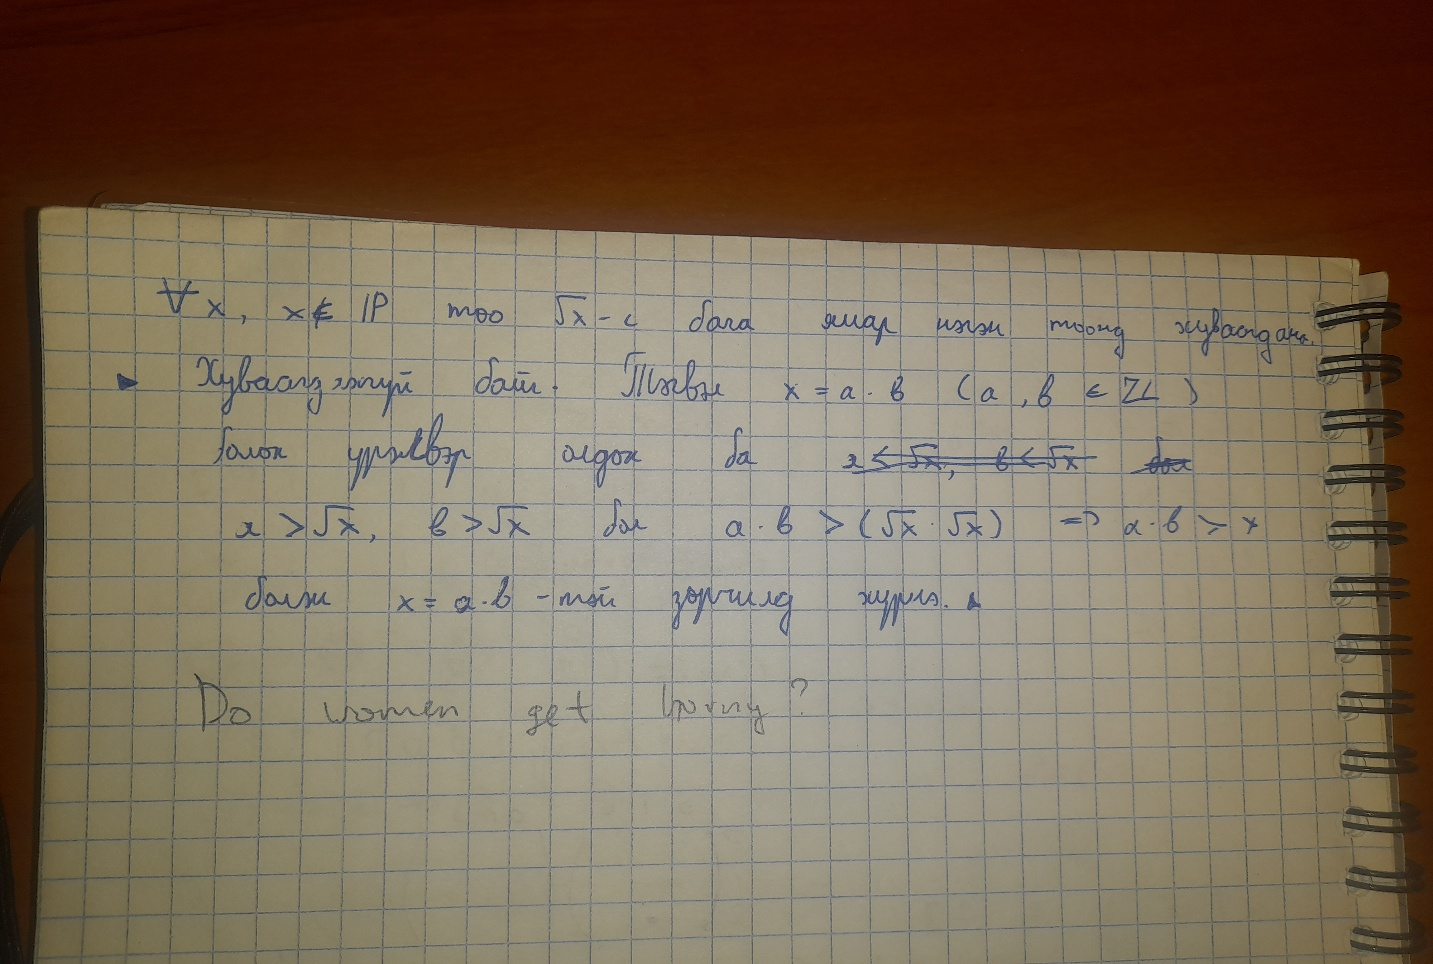 ∀x, x∉ℙ тоо √x-с бага ямар нэгэн тоонд хуваагдана.
▶ Хуваагдахгүй байг. Тэгвэл x = a · b (a, b ∈ ℤ)
болох үржвэр олдох ба
a > √x, b > √x бол a · b > (√x · √x) => a · b > x
болж x = a · b -тэй зөрчилд хүрнэ.
Do women get horny?